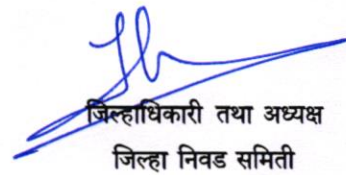 जिल्हाधिकारी तथा अध्यक्ष
जिल्हा निवड समिती